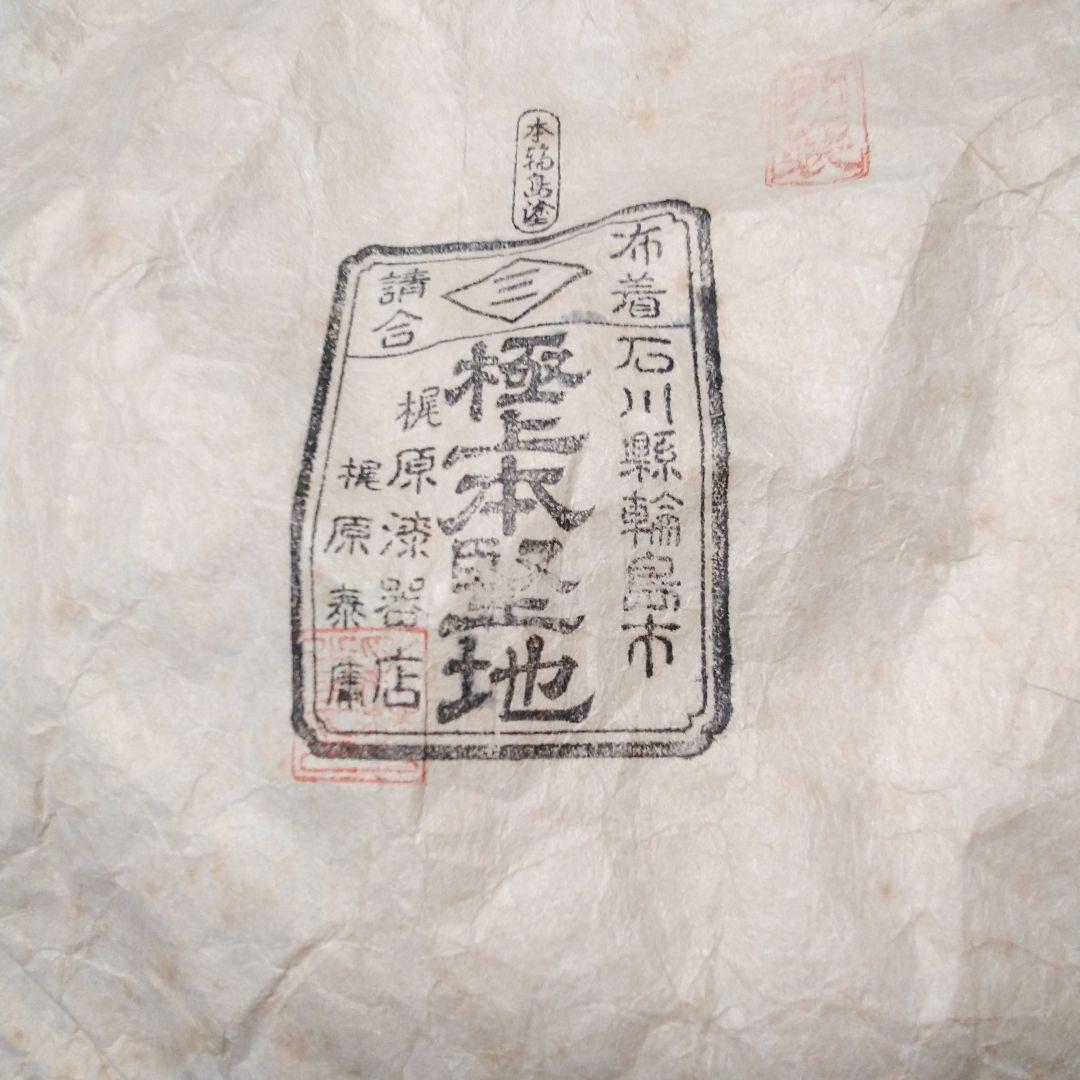 本輪島塗
布着
三
請合
石川縣輪島市
極上本堅地
梶原漆器店
梶原泰庸